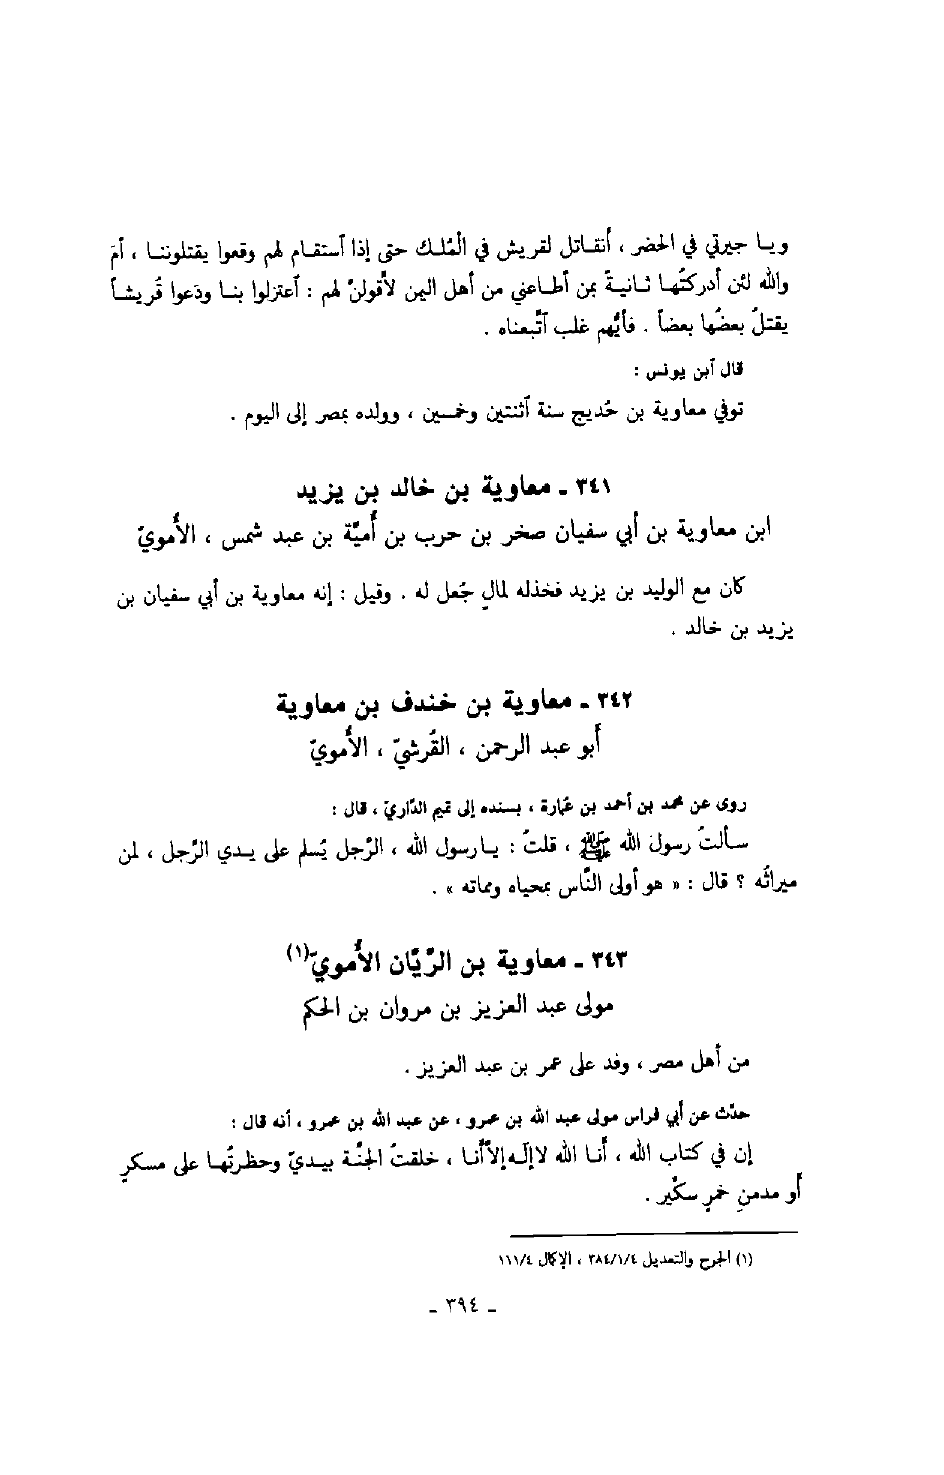 ويا جيرتي في الحضر ، أنقاتل لقريش في المُلك حتى إذا آستقام لهم وقعوا يقتلوننا ، أمَ
والله لئن أدركتُها ثانيةً بمن أطاعني من أهل اليمن لأقولنّ لهم : آعتزلوا بنا ودَعوا قُريشاً
يقتلُ بعضُها بعضاً . فأيُّهم غلب آتَّبعناه .
قال آبن يونس :
توفي معاوية بن حُديج سنة آثنتين وخمسين ، وولده بمصر إلى اليوم .
٣٤١ ـ معاوية بن خالد بن يزيد
ابن معاوية بن أبي سفيان صخر بن حرب بن أُميَّة بن عبد شمس ، الأُمويّ
كان مع الوليد بن يزيد فخذله لمالٍ جُعل له . وقيل : إنه معاوية بن أبي سفيان بن
يزيد بن خالد .
٣٤٢ ـ معاوية بن خندف بن معاوية
أبو عبد الرحمن ، القُرشيّ ، الأُمويّ
روى عن محمد بن أحمد بن عُمارة ، بسنده إلى تميم الدّاريّ ، قال :
سألتُ رسول الله ﷺ ، قلتُ : يارسول الله ، الرَّجل يُسلم على يدي الرَّجل ، لمن
ميراثُه ؟ قال : « هو أولى النَّاس بمحياه ومماته » .
٣٤٣ ـ معاوية بن الرَّيَّان الأُمويّ(١)
مولى عبد العزيز بن مروان بن الحكم
من أهل مصر ، وفد على عمر بن عبد العزيز .
حدّث عن أبي فراس مولى عبد الله بن عمرو ، عن عبد الله بن عمرو ، أنه قال :
إن في كتاب الله ، أنا الله لاإله إلاّأنا ، خلقتُ الجنَّة بيديّ وحظرتُها على مسكرٍ
أو مدمنِ خمرٍ سكّير .
(١) الجرح والتعديل ٣٨٤/١/٤ ، الإكمال ١١١/٤
ـ ٣٩٤ ـ